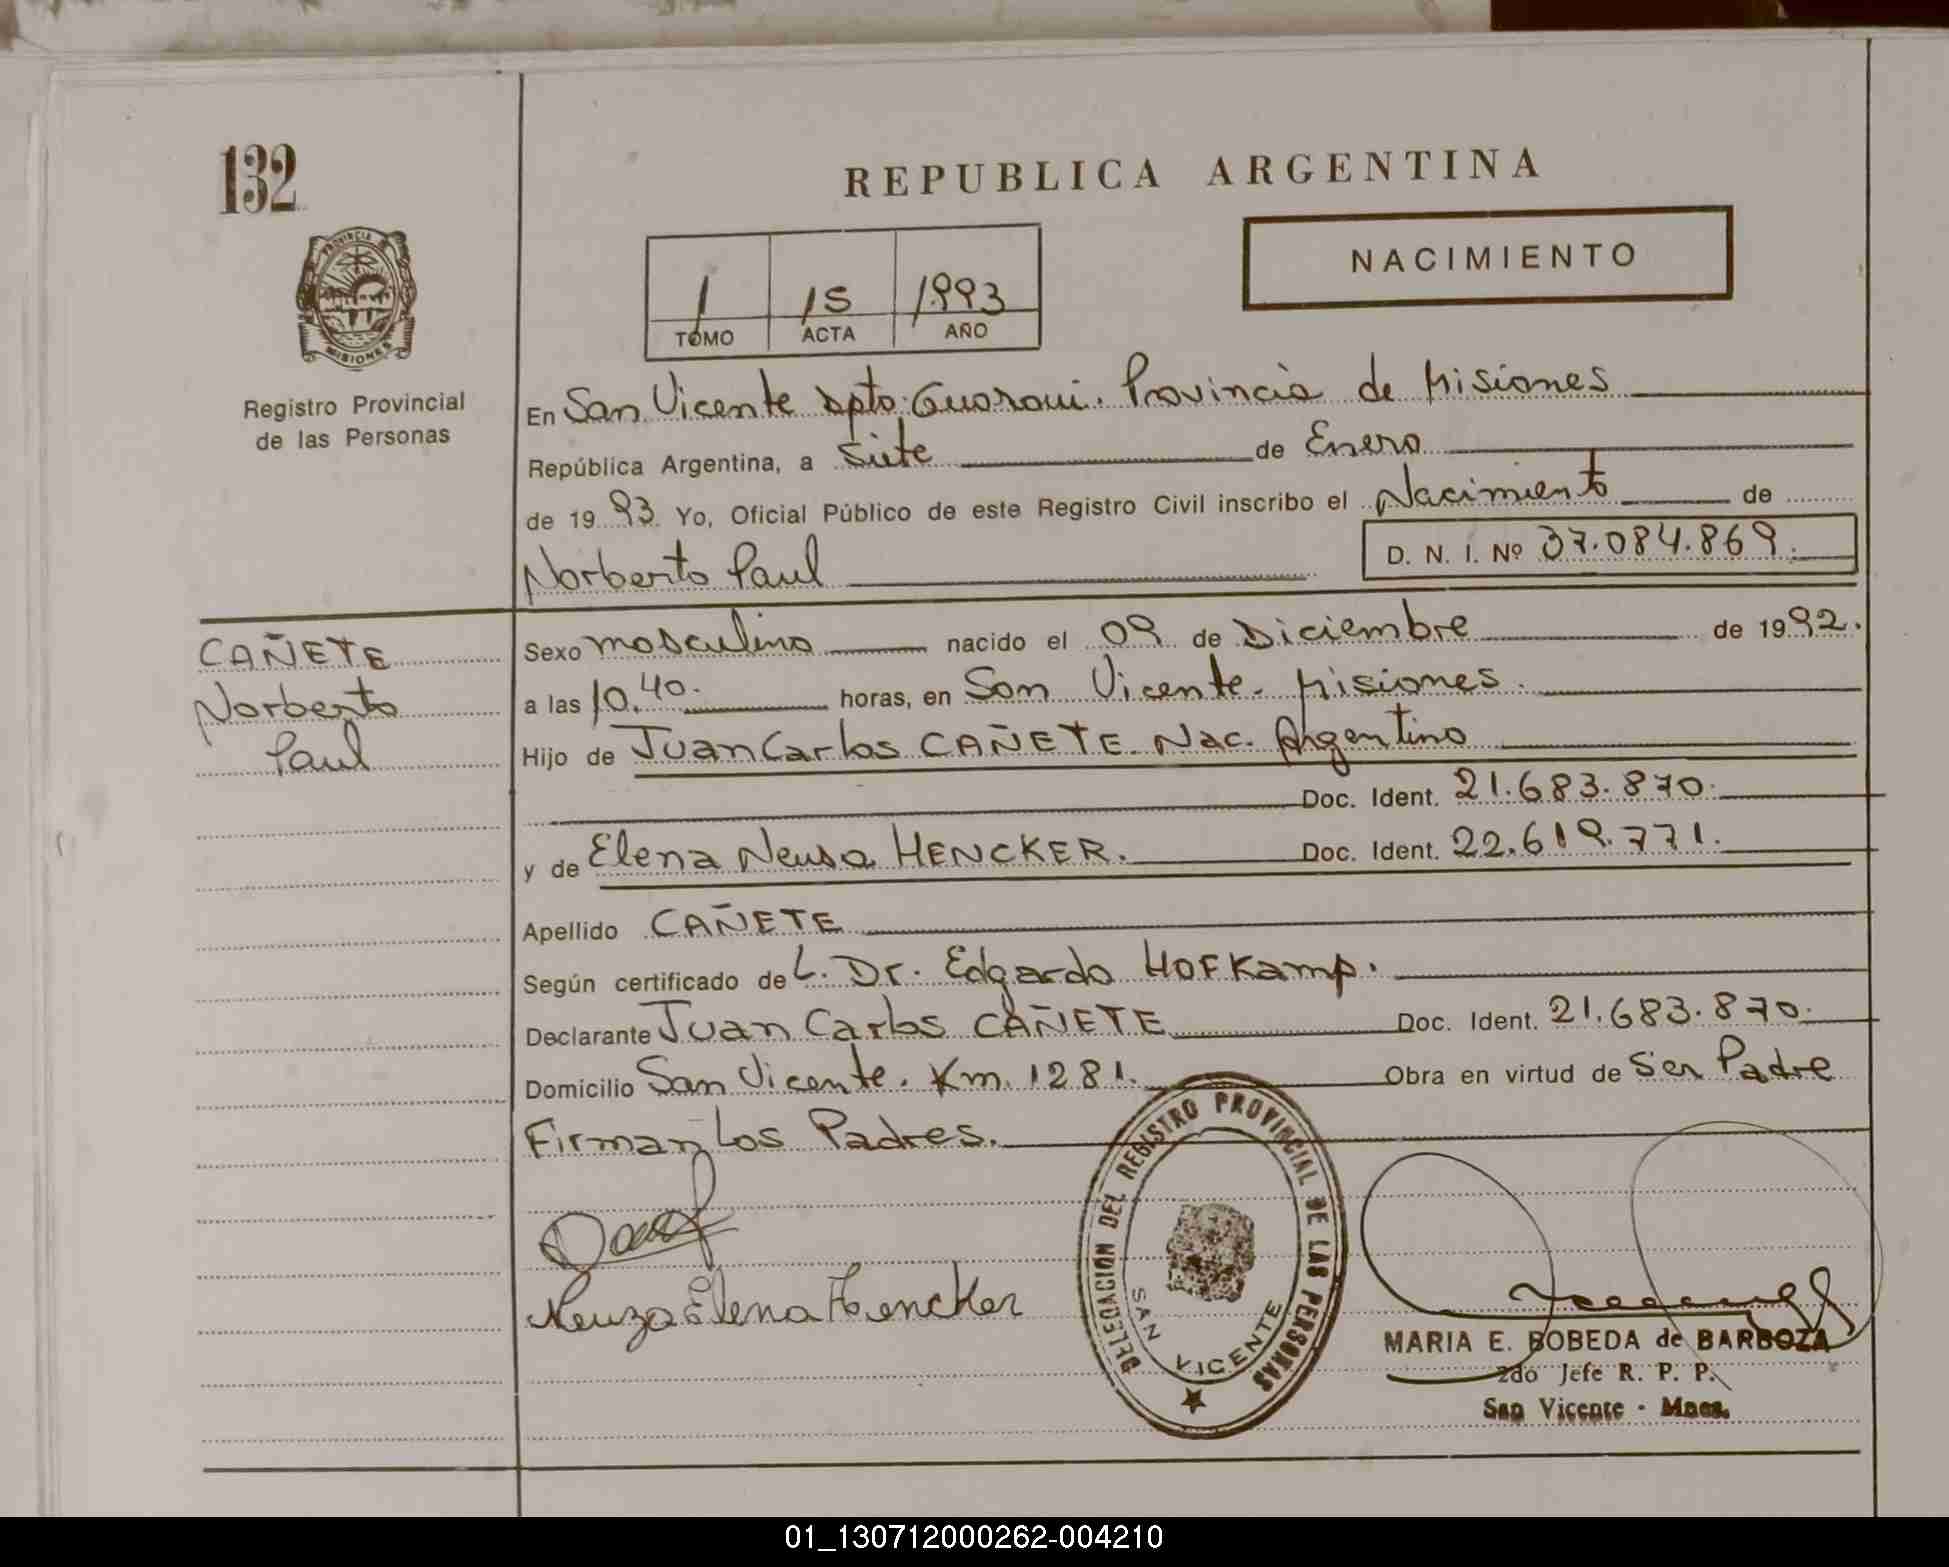 132
REPUBLICA ARGENTINA
NACIMIENTO
PROVINCIA DE
MISIONES
Registro Provincial
de las Personas
1 15 1993
TOMO ACTA AÑO
En San Vicente Dpto. Guarani. Provincia de Misiones
República Argentina, a siete de Enero
de 1993. Yo, Oficial Público de este Registro Civil inscribo el Nacimiento de
Norberto Paul D. N. I. Nº 37.084.869.
CAÑETE
Norberto
Paul
Sexo masculino nacido el 09 de Diciembre de 1992.
a las 10.40. horas, en San Vicente. Misiones.
Hijo de Juan Carlos CAÑETE. Nac. Argentino
Doc. Ident. 21.683.870.
y de Elena Neusa HENCKER. Doc. Ident. 22.619.771.
Apellido CAÑETE
Según certificado de L. Dr. Edgardo HOFKamp.
Declarante Juan Carlos CAÑETE Doc. Ident. 21.683.870.
Domicilio San Vicente. Km. 1281. Obra en virtud de Ser Padre
Firman Los Padres.
Neuza Elena Hencker
DELEGACION DEL REGISTRO PROVINCIAL DE LAS PERSONAS
SAN VICENTE
MARIA E. BOBEDA de BARBOZA
2do Jefe R. P. P.
San Vicente - Mnes.
01_130712000262-004210